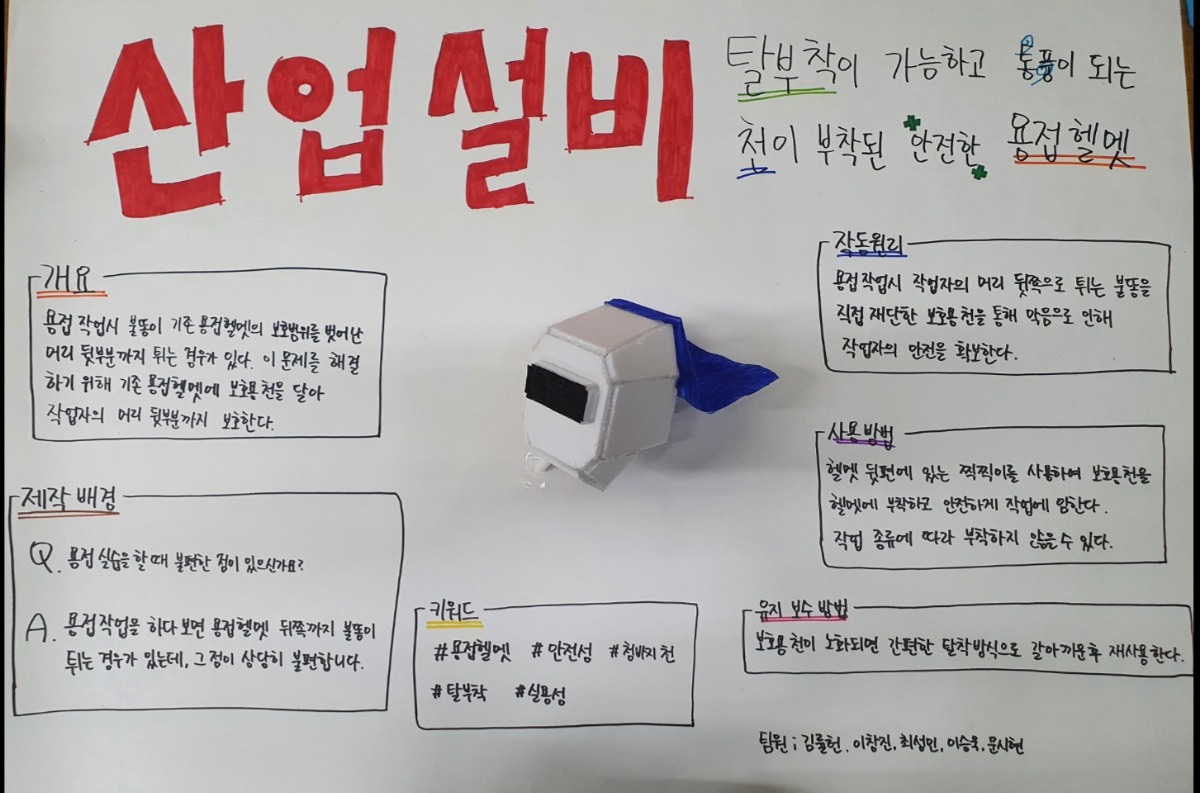 산업설비
탈부착이 가능하고 통풍이 되는
천이 부착된 안전한 용접헬멧
개요
용접 작업시 불똥이 기존 용접헬멧의 보호범위를 벗어난
머리 뒷부분까지 튀는 경우가 있다. 이 문제를 해결
하기 위해 기존 용접헬멧에 보호용 천을 달아
작업자의 머리 뒷부분까지 보호한다.
제작 배경
Q. 용접 실습을 할 때 불편한 점이 있으신가요?
A. 용접작업을 하다보면 용접헬멧 뒤쪽까지 불똥이
튀는 경우가 있는데, 그점이 상당히 불편합니다.
키워드
#용접헬멧 #안전성 #청바지천
#탈부착 #실용성
작동원리
용접작업시 작업자의 머리 뒷쪽으로 튀는 불똥을
직접 재단한 보호용천을 통해 막음으로 인해
작업자의 안전을 확보한다.
사용방법
헬멧 뒷편에 있는 찍찍이를 사용하여 보호용천을
헬멧에 부착하고 안전하게 작업에 임한다.
작업 종류에 따라 부착하지 않을 수 있다.
유지 보수 방법
보호용천이 노화되면 간편한 탈착방식으로 갈아끼운후 재사용한다.
팀원 ; 김률헌, 이창진, 최성민, 이승욱, 문시헌